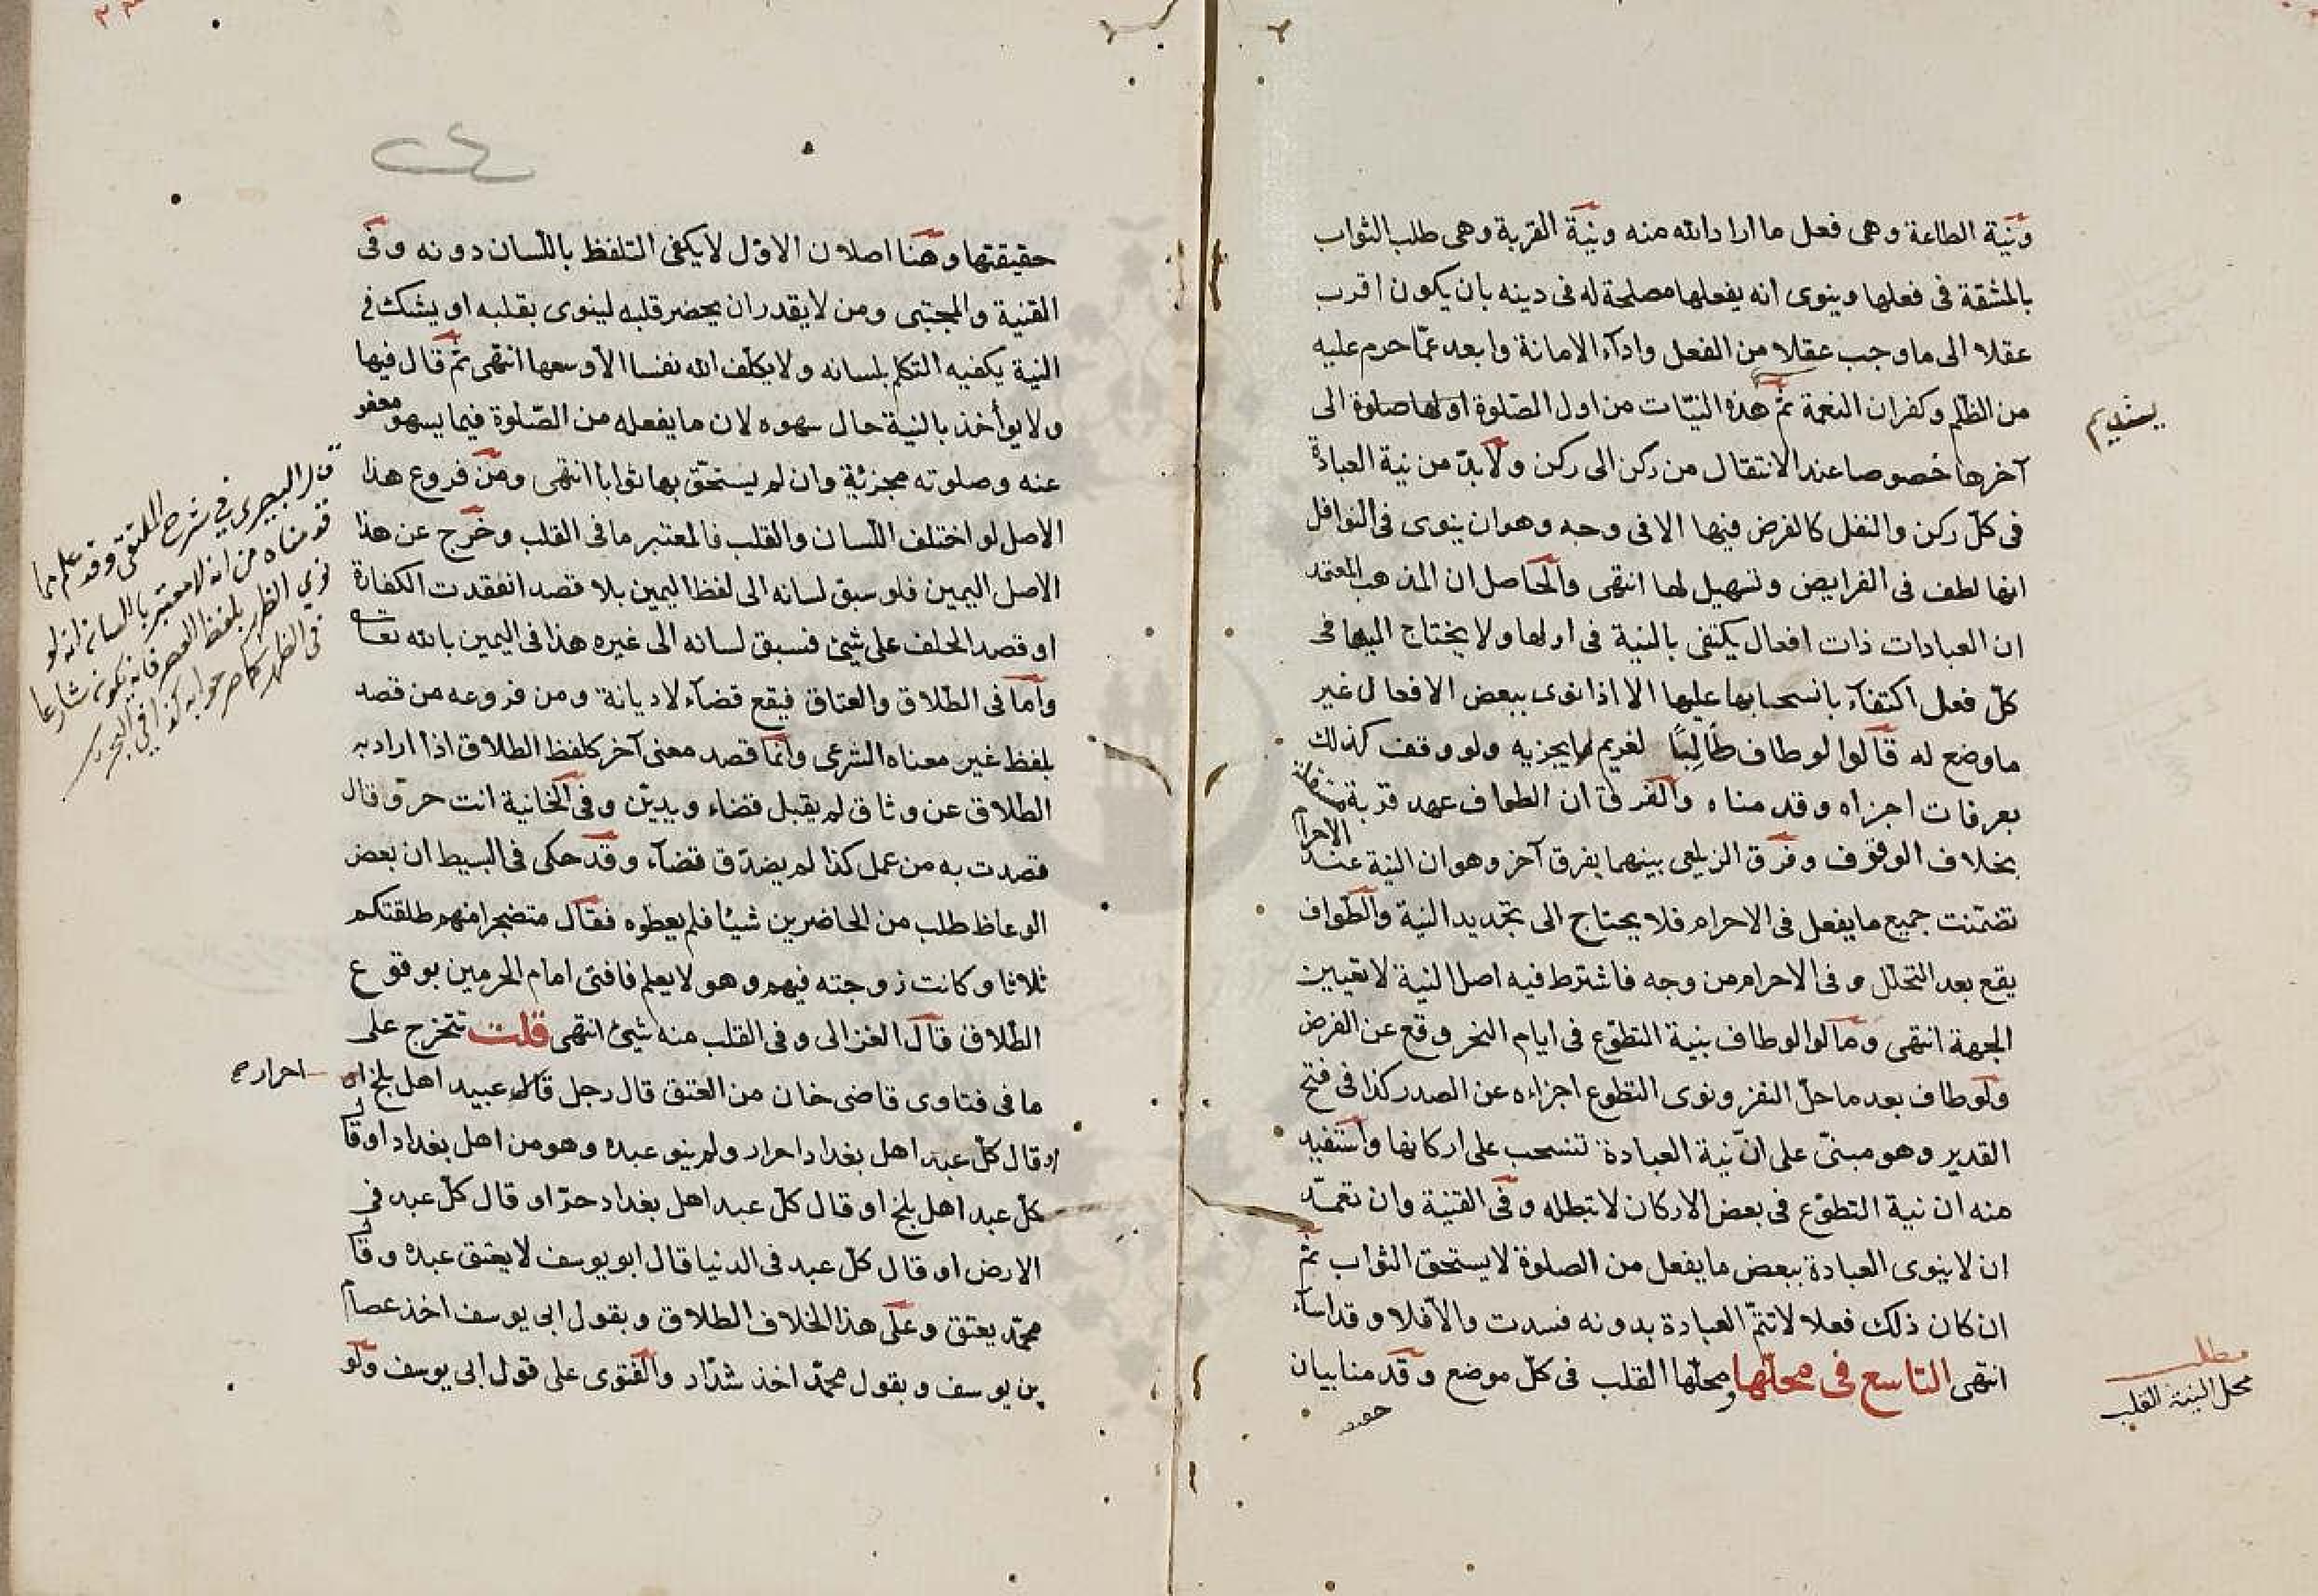 ونية الطاعة وهى فعل ما اراد الله منه ونية القربة وهى طلب الثواب
بالمشقة فى فعلها وينوى انه يفعلها مصلحة له فى دينه بان يكون اقرب
عقلا الى ما وجب عقلا من الفعل واداء الامانة وابعد عمّا حرم عليه
من الظلم وكفران النعمة ثم هذه النيّات من اول الصّلوة اولها صلوة الى
يستديم
آخرها خصوصا عند الانتقال من ركن الى ركن ولابدّ من نية العبادة
فى كلّ ركن والنفل كالفرض فيها الا فى وجه وهو ان ينوى فى النوافل
انها لطف فى الفرايض وتسهيل لها انتهى والحاصل ان المذهب المعتمد
ان العبادات ذات افعال يكتفى بالنية فى اولها ولا يحتاج اليها فى
كلّ فعل اكتفآء بانسحابها عليها الا اذا نوى ببعض الافعال غير
ما وضع له قالوا لو طاف طَالِبًا لغريم لا يجزيه ولو وقف كذلك
بعرفات اجزاه وقدمناه والفرق ان الطواف عهد قربة مستقلة
بخلاف الوقوف وفرق الزيلعى بينهما بفرق آخر وهو ان النية عند الاحرام
تضمّنت جميع ما يفعل فى الاحرام فلا يحتاج الى تجديد النية والطواف
يقع بعد التحلل وفى الاحرام من وجه فاشترط فيه اصل النية لا تعيين
الجهة انتهى وقالوا لو طاف بنية التطوّع فى ايام النحر وقع عن الفرض
ولو طاف بعد ما حلّ النفر ونوى التطوع اجزاءه عن الصدر كذا فى فتح
القدير وهو مبنىّ على انّ نية العبادة تنسحب على اركانها واستفيد
منه ان نية التطوّع فى بعض الاركان لا تبطله وفى القنية وان تعمّد
ان لا ينوى العبادة ببعض ما يفعل من الصلوة لا يستحق الثواب ثم
ان كان ذلك فعلا لا تتمّ العبادة بدونه فسدت والا فلا وقد اساء
انتهى التاسع فى محلّها ومحلّها القلب فى كلّ موضع وقدمنا بيان
مطلب
محل النية القلب
حقيقتها وهنا اصلان الاوّل لا يكفى التلفظ باللسان دونه وفى
القنية والمجتبى ومن لا يقدر ان يحضر قلبه لينوى بقلبه او يشك فى
النية يكفيه التكلم بلسانه ولا يكلّف الله نفسا الا وسعها انتهى ثم قال فيها
ولا يوأخذ بالنية حال سهوه لان ما يفعله من الصّلوة فيما يسهو معفو
عنه وصلوته مجزئة وان لم يستحقّ بها ثوابا انتهى ومن فروع هذا
الاصل لو اختلف اللسان والقلب فالمعتبر ما فى القلب وخرج عن هذا
الاصل اليمين فلو سبق لسانه الى لفظ اليمين بلا قصد انعقدت الكفارة
او قصد الحلف على شئ فسبق لسانه الى غيره هذا فى اليمين بالله تعا
وأما فى الطلاق والعتاق فيقع قضآء لا ديانة ومن فروعه من قصد
بلفظ غير معناه الشرعى وانّما قصد معنى آخر كلفظ الطلاق اذا اراد به
الطلاق عن وثاق لم يقبل قضاء ويديّن وفى الخانية انت حرّ وقال
قصدت به من عمل كذا لم يصدّق قضآء وقد حكى فى البسيط ان بعض
الوعاظ طلب من الحاضرين شيئا فلم يعطوه فقال متضجرا منهم طلقتكم
ثلاثا وكانت زوجته فيهم وهو لا يعلم فافتى امام الحرمين بوقوع
الطلاق قال الغزالى وفى القلب منه شئ انتهى قلت تتخرج على
ما فى فتاوى قاضى خان من العتق قال رجل قال عبيد اهل بلخ احرار
او قال كلّ عبد اهل بغداد احرار ولم ينو عبده وهو من اهل بغداد او قال
كلّ عبد اهل بلخ او قال كلّ عبد اهل بغداد حرّ او قال كلّ عبد فى
الارض او قال كلّ عبد فى الدنيا قال ابو يوسف لا يعتق عبده وقال
محمّد يعتق وعلى هذا الخلاف الطلاق وبقول ابى يوسف اخذ عصام
بن يوسف وبقول محمّد اخذ شدّاد والفتوى على قول ابى يوسف ولو
فى شرح الملتقى وقد علم مما
قدمناه من انه لا معتبر باللسان انه لو
نوى الظهر بلفظ العصر فانه يكون شارعا
فى الظهر